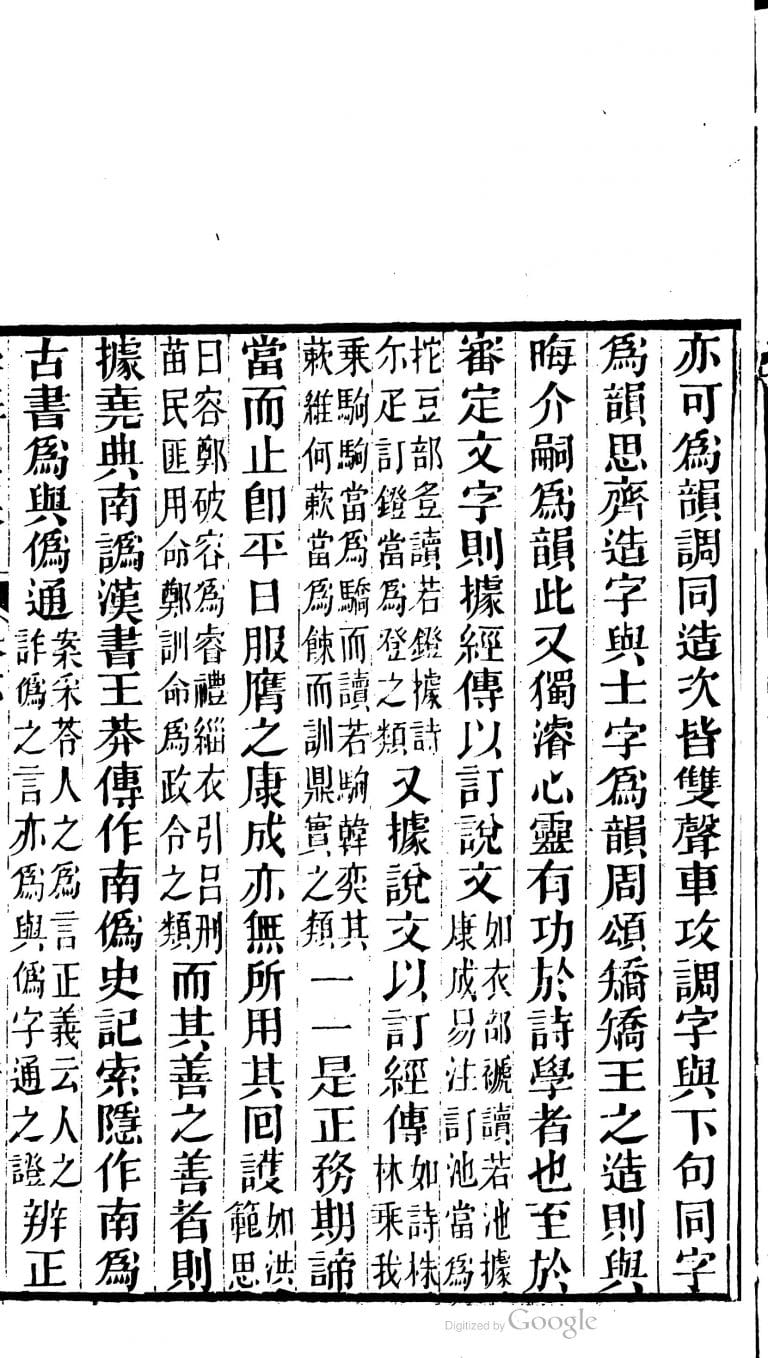 亦可爲韻調同造次皆雙聲車攻調字與下句同字
爲韻思齊造字與士字爲韻周頌矯矯王之造則與
晦介嗣爲韻此又獨濬心靈有功於詩學者也至於
審定文字則據經傳以訂說文如衣部褫讀若池據康成易注訂池當爲
拕豆部䇺讀若鐙據詩尔疋訂鐙當爲登之類又據說文以訂經傳如詩株林乘我
乘駒駒當爲驕而讀若駒韓奕其蔌維何蔌當爲餗而訓鼎實之類一一是正務期諦
當而止卽平日服膺之康成亦無所用其回護如洪範思
曰容鄭破容爲睿禮緇衣引呂刑苗民匪用命鄭訓命爲政令之類而其善之善者則
據堯典南譌漢書王莽傳作南僞史記索隱作南爲
古書爲與僞通案采苓人之爲言正義云人之詐僞之言亦爲與僞字通之證辨正
Digitized by Google